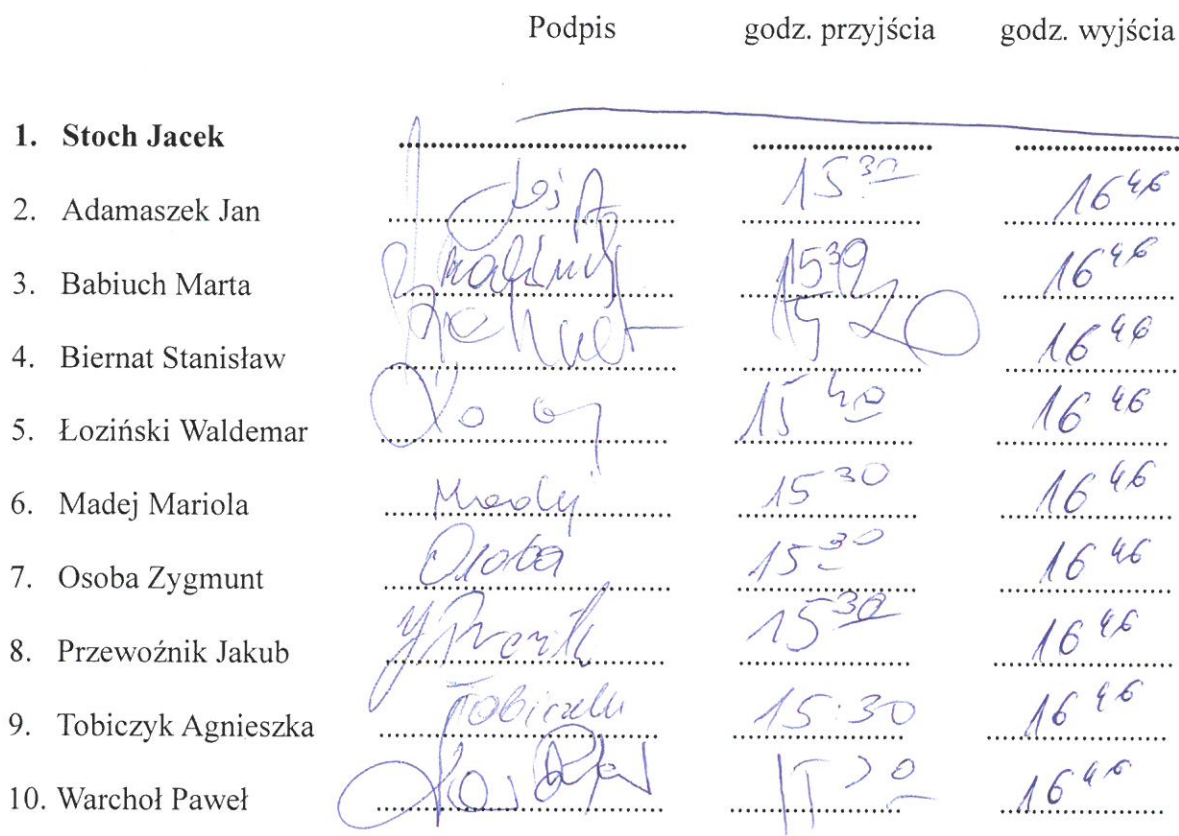 Podpis godz. przyjścia godz. wyjścia
1. Stoch Jacek
2. Adamaszek Jan 15 30 16 46
3. Babiuch Marta 15 30 16 46
4. Biernat Stanisław 16 46
5. Łoziński Waldemar 15 40 16 46
6. Madej Mariola Madej 15 30 16 46
7. Osoba Zygmunt Osoba 15 30 16 46
8. Przewoźnik Jakub 15 30 16 46
9. Tobiczyk Agnieszka 15:30 16 46
10. Warchoł Paweł 16 46